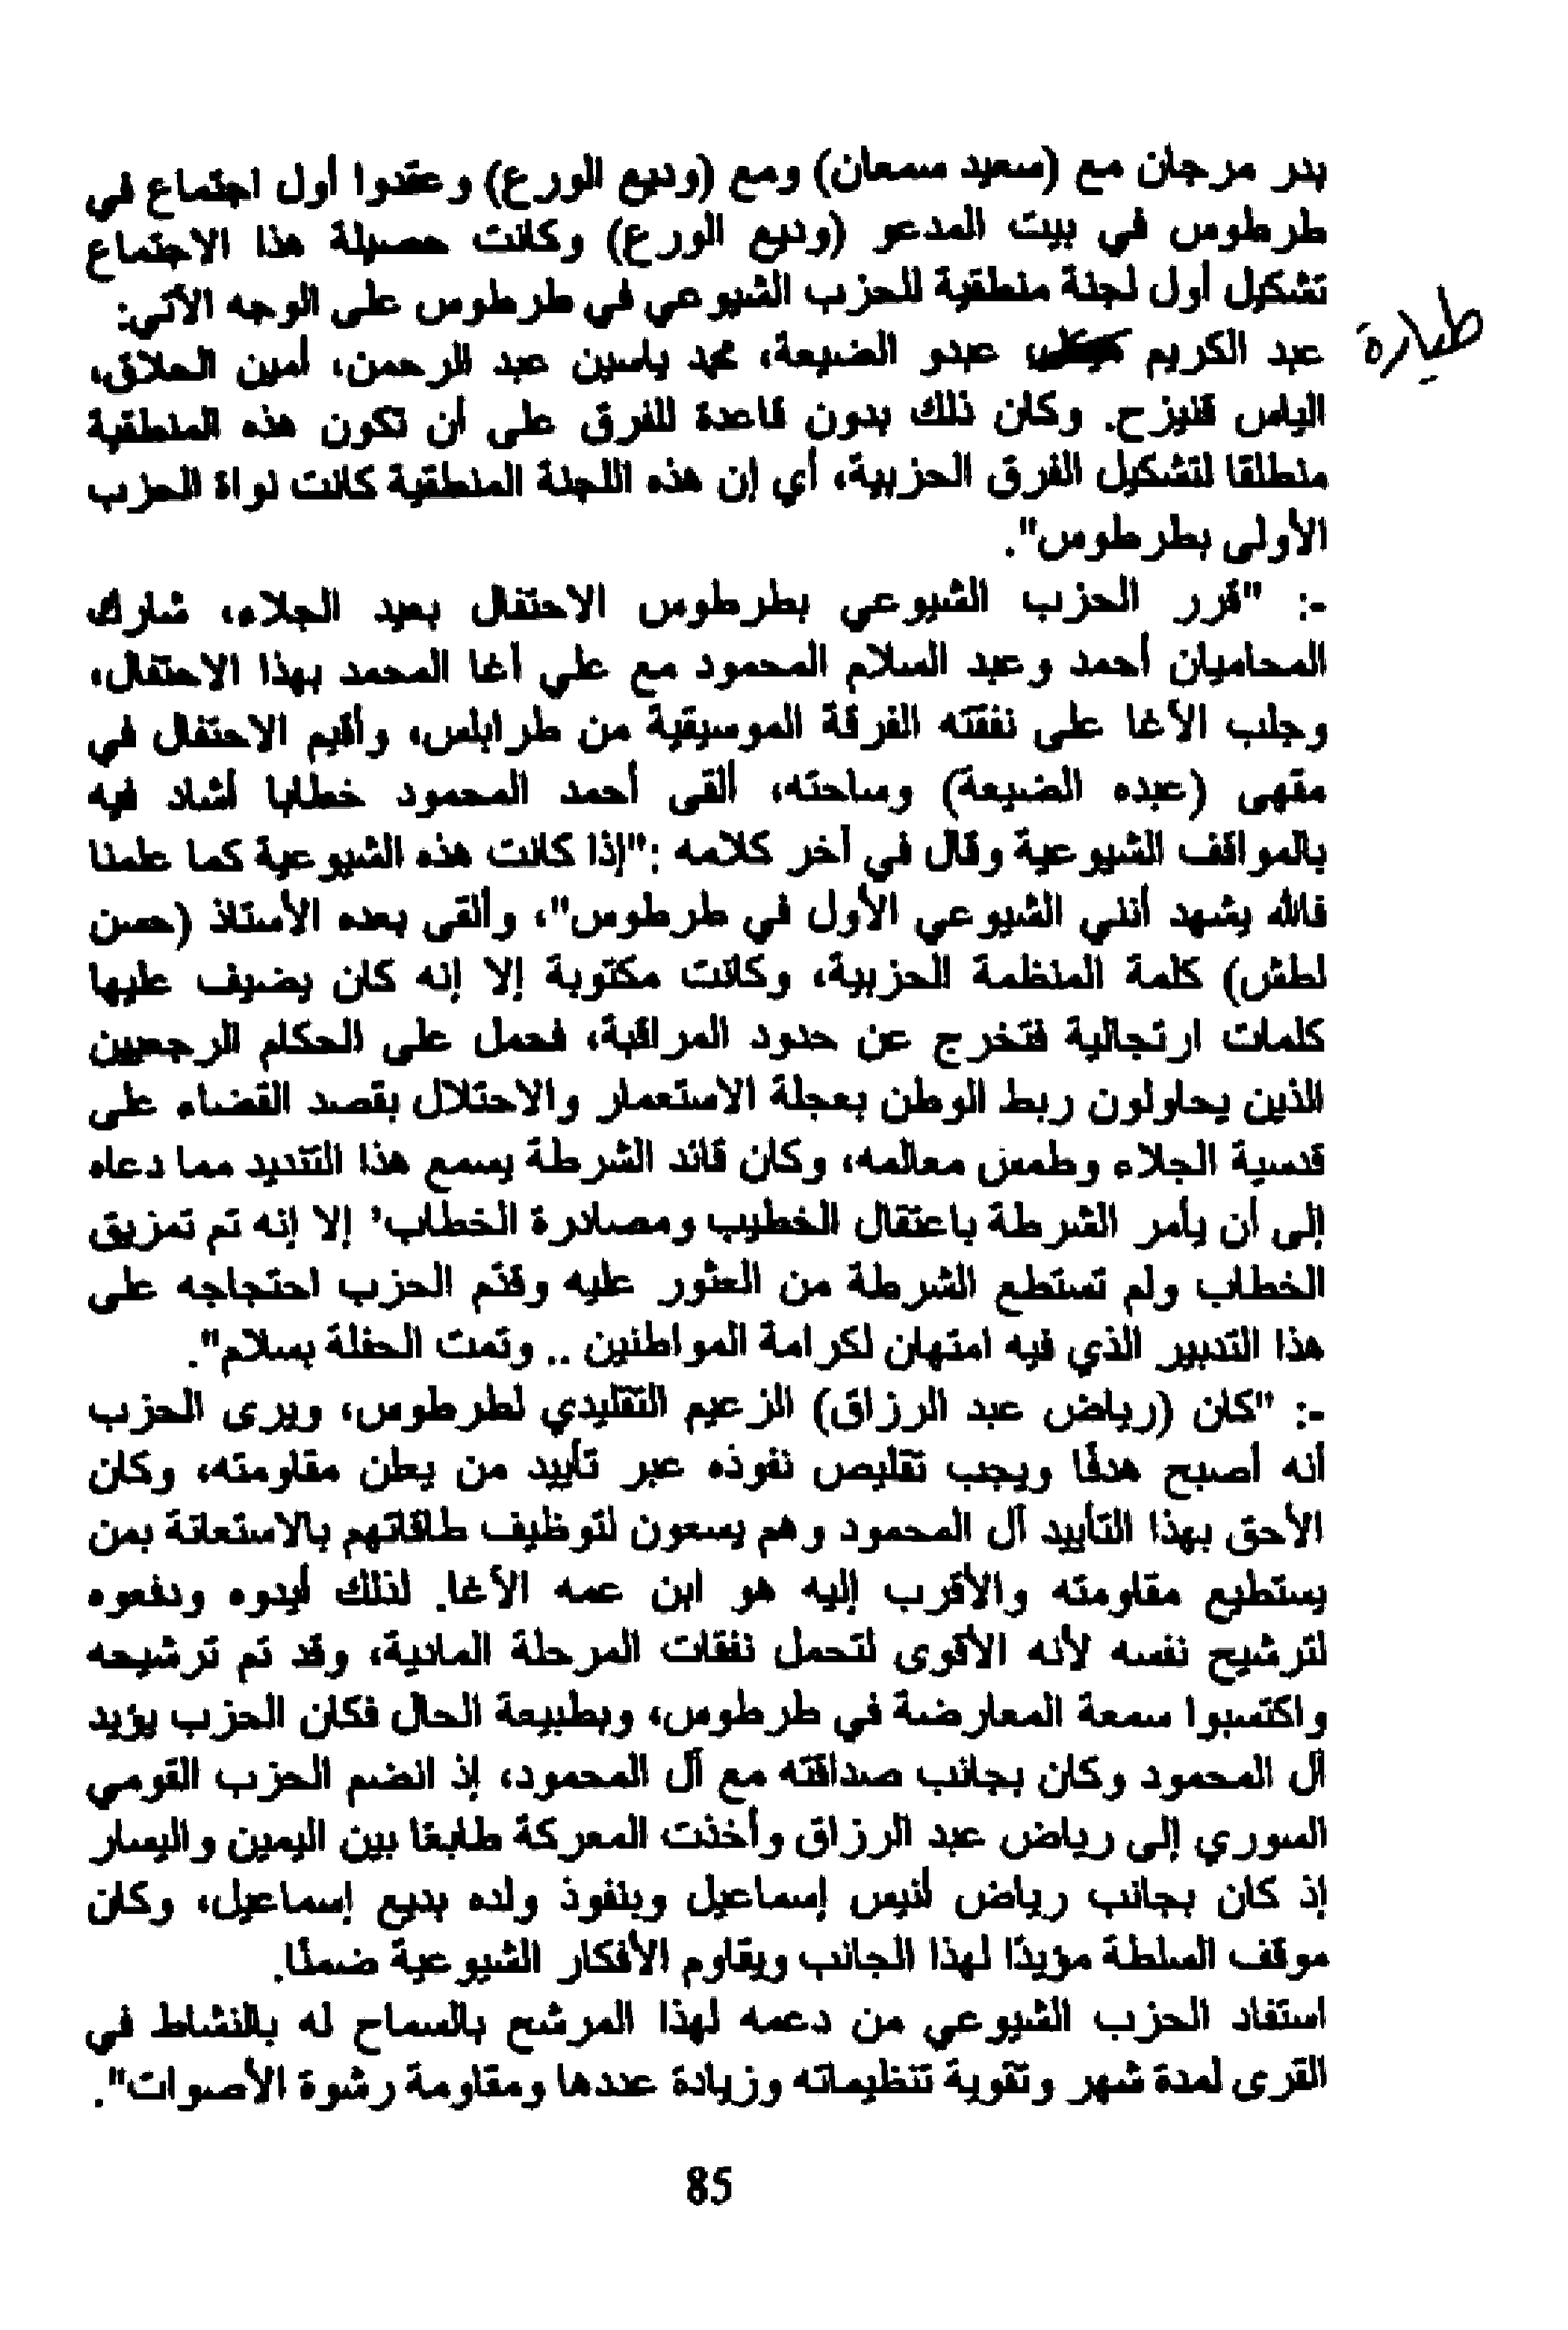 بدر مرجان مع (سعيد سمعان) ومع (وديع الورع) وعقدوا أول اجتماع في
طرطوس في بيت المدعو (وديع الورع) وكانت حصيلة هذا الاجتماع
تشكيل أول لجنة منطقية للحزب الشيوعي في طرطوس على الوجه الآتي:
طيارة
عبد الكريم ، عبدو الضيعة، محمد ياسين عبد الرحمن، أمين الحلاق،
الياس قنيزح. وكان ذلك بدون قاعدة للفرق على أن تكون هذه المنطقية
منطلقا لتشكيل الفرق الحزبية، أي إن هذه اللجنة المنطقية كانت نواة الحزب
الأولى بطرطوس".
-: "قرر الحزب الشيوعي بطرطوس الاحتفال بعيد الجلاء، شارك
المحاميان أحمد وعبد السلام المحمود مع علي أغا المحمد بهذا الاحتفال،
وجلب الأغا على نفقته الفرقة الموسيقية من طرابلس، وأقيم الاحتفال في
مقهى (عبده الضيعة) وساحته، ألقى أحمد المحمود خطابا أشاد فيه
بالمواقف الشيوعية وقال في آخر كلامه :"إذا كانت هذه الشيوعية كما علمنا
فالله يشهد أنني الشيوعي الأول في طرطوس"، وألقى بعده الأستاذ (حسن
لطش) كلمة المنظمة الحزبية، وكانت مكتوبة إلا إنه كان يضيف عليها
كلمات ارتجالية فتخرج عن حدود المراقبة، فحمل على الحكام الرجعيين
الذين يحاولون ربط الوطن بعجلة الاستعمار والاحتلال بقصد القضاء على
قدسية الجلاء وطمس معالمه، وكان قائد الشرطة يسمع هذا التنديد مما دعاه
إلى أن يأمر الشرطة باعتقال الخطيب ومصادرة الخطاب' إلا إنه تم تمزيق
الخطاب ولم تستطع الشرطة من العثور عليه وقدّم الحزب احتجاجه على
هذا التدبير الذي فيه امتهان لكرامة المواطنين .. وتمت الحفلة بسلام".
-: "كان (رياض عبد الرزاق) الزعيم التقليدي لطرطوس، ويرى الحزب
أنه أصبح هدفًا ويجب تقليص نفوذه عبر تأييد من يعلن مقاومته، وكان
الأحق بهذا التأييد آل المحمود وهم يسعون لتوظيف طاقاتهم بالاستعانة بمن
يستطيع مقاومته والأقرب إليه هو ابن عمه الأغا. لذلك أيدوه ودفعوه
لترشيح نفسه لأنه الأقوى لتحمل نفقات المرحلة المادية، وقد تم ترشيحه
واكتسبوا سمعة المعارضة في طرطوس، وبطبيعة الحال فكان الحزب يؤيد
آل المحمود وكان بجانب صداقته مع آل المحمود، إذ انضم الحزب القومي
السوري إلى رياض عبد الرزاق وأخذت المعركة طابعًا بين اليمين واليسار
إذ كان بجانب رياض أنيس إسماعيل وبنفوذ ولده بديع إسماعيل، وكان
موقف السلطة مؤيدًا لهذا الجانب ويقاوم الأفكار الشيوعية ضمنًا.
استفاد الحزب الشيوعي من دعمه لهذا المرشح بالسماح له بالنشاط في
القرى لمدة شهر وتقوية تنظيماته وزيادة عددها ومقاومة رشوة الأصوات".
85